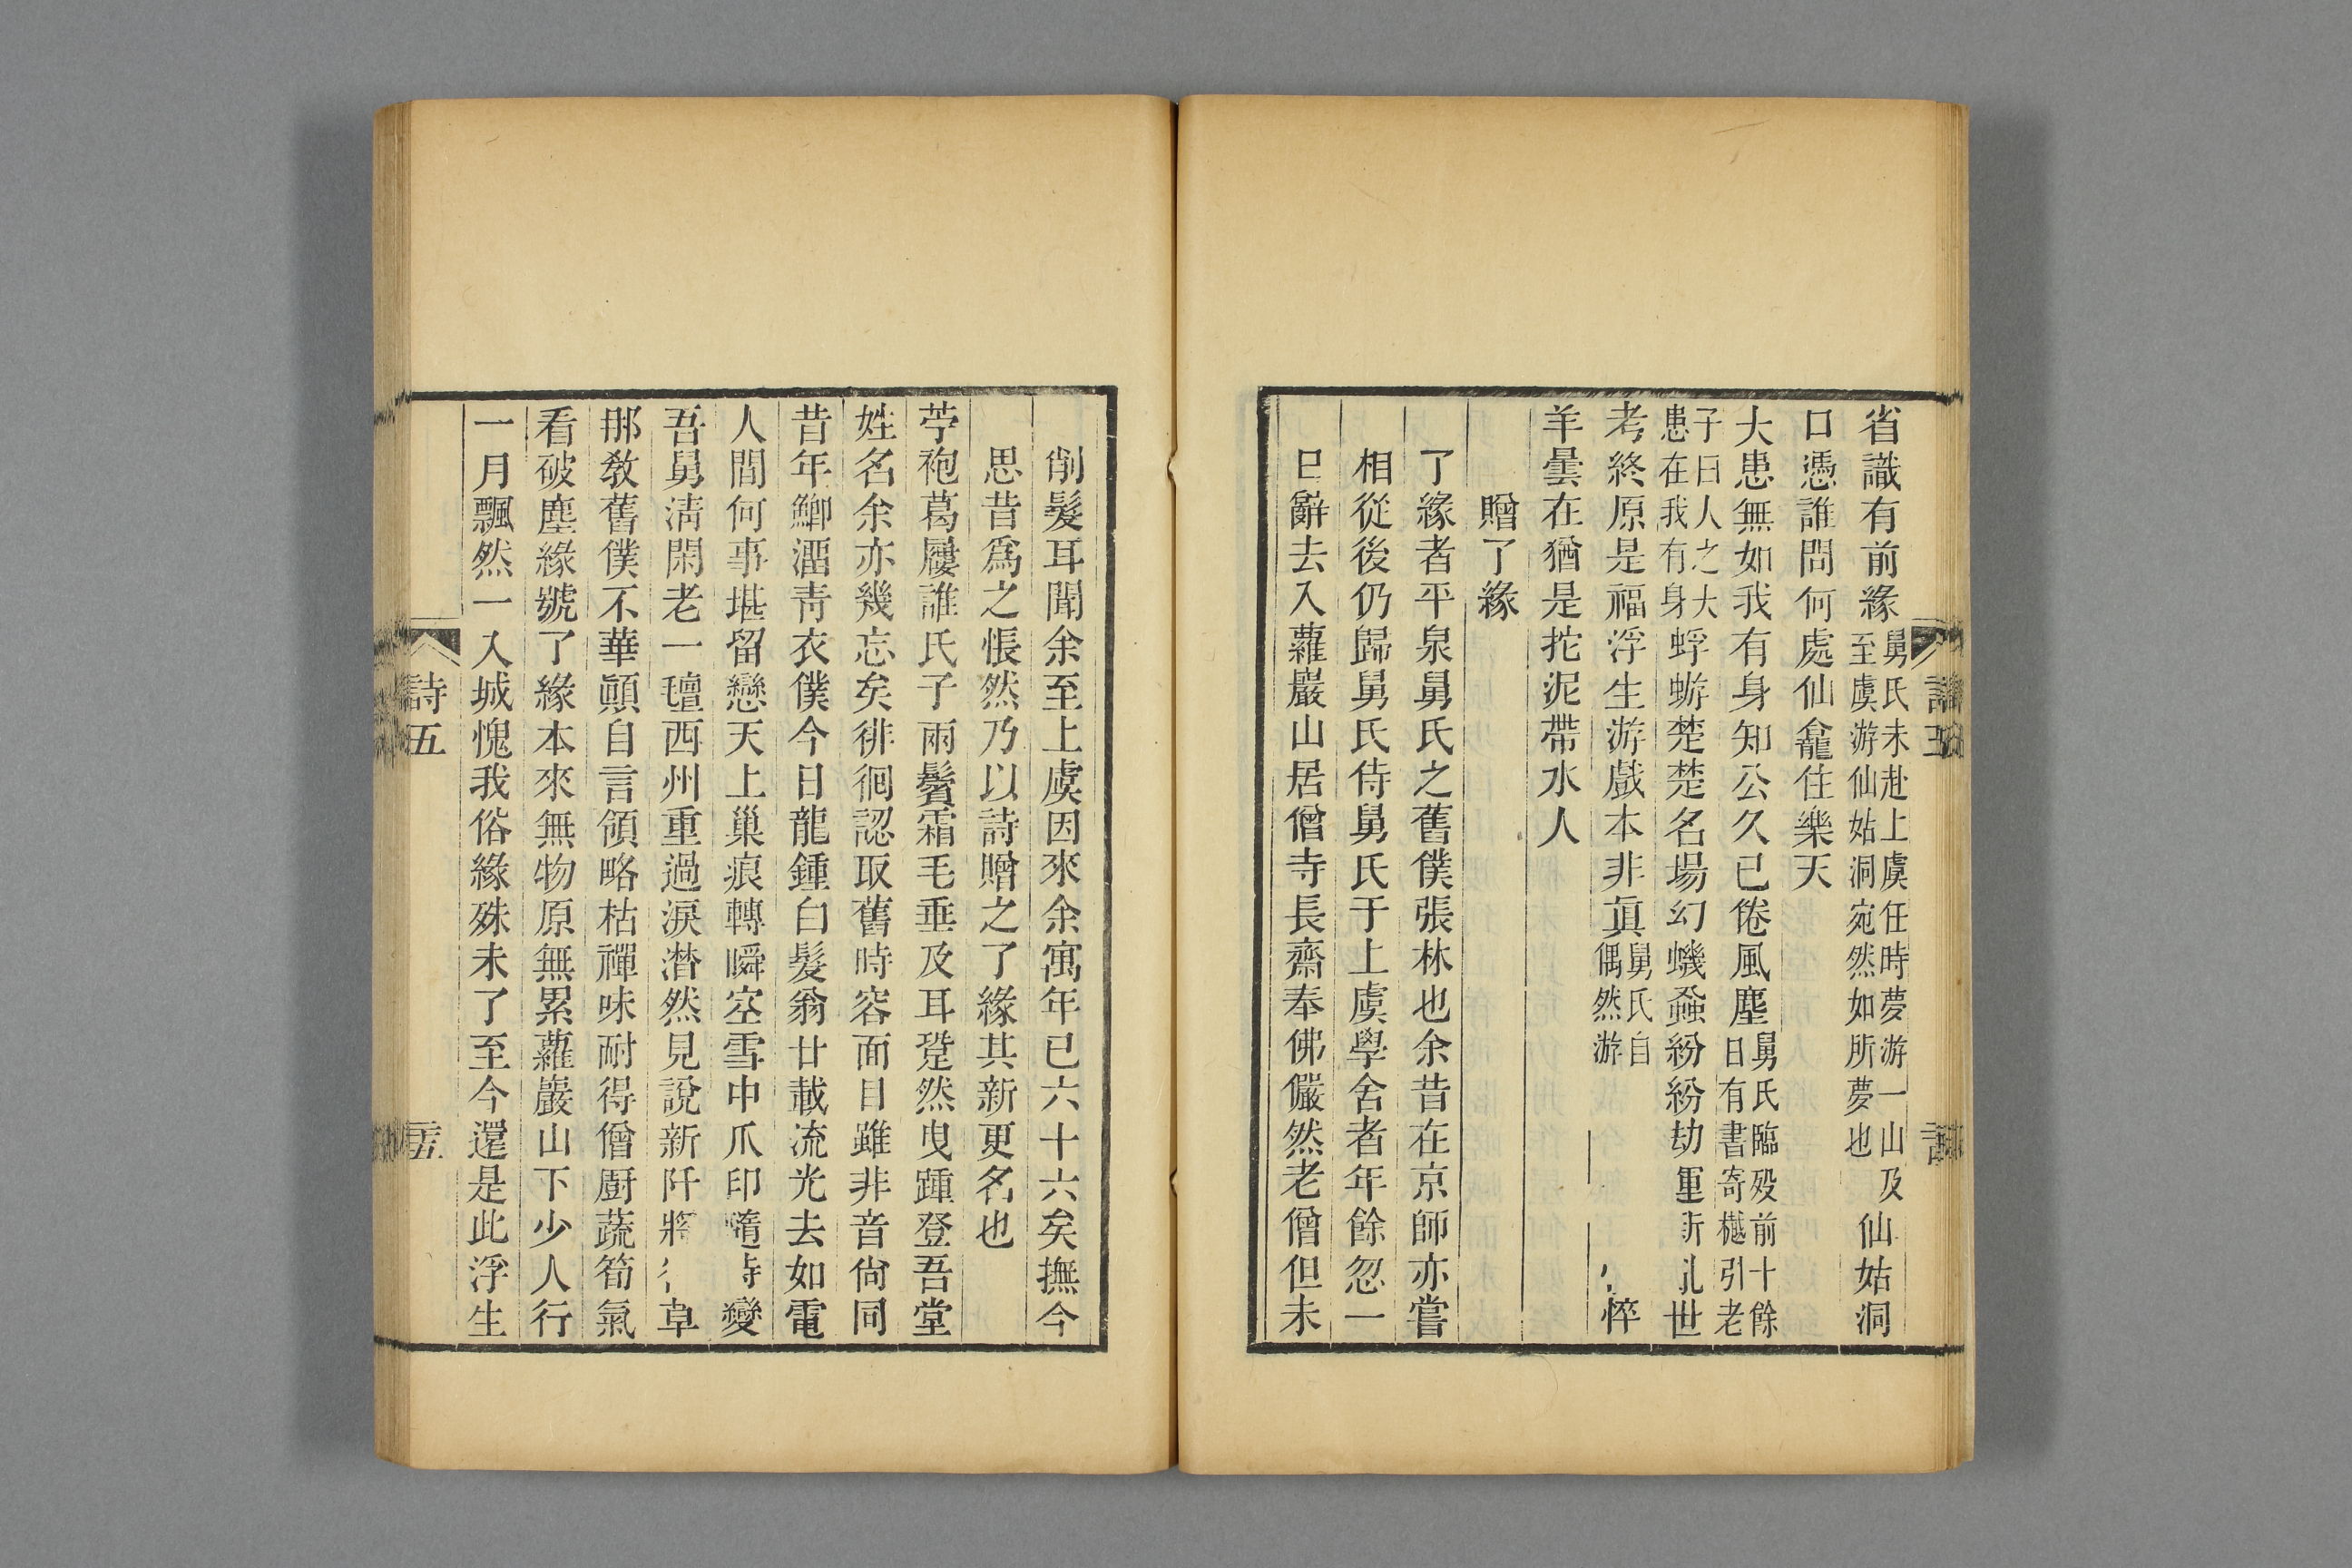 省識有前緣舅氏未赴上虞任時夢游一山及至虞游仙姑洞宛然如所夢也仙姑洞
口憑誰問何處仙龕住樂天
大患無如我有身知公久已倦風塵舅氏臨殁前十餘日有書寄樾引老
子曰人之大患在我有身蜉蝣楚楚名場幻蟣蝨紛紛劫重世
考終原是福浮生游戲本非眞舅氏自偶然游悴
羊曇在猶是拕泥帶水人
贈了緣
了緣者平泉舅氏之舊僕張林也余昔在京師亦嘗
相從後仍歸舅氏侍舅氏于上虞學舍者年餘忽一
日辭去入蘿巖山居僧寺長齋奉佛儼然老僧但未
削髮耳聞余至上虞因來余寓年已六十六矣撫今
思昔爲之悵然乃以詩贈之了緣其新更名也
苧袍葛屨誰氏子兩鬢霜毛垂及耳跫然曳踵登吾堂
姓名余亦幾忘矣徘徊認取舊時容面目雖非音尙同
昔年鯽溜靑衣僕今日龍鍾白髮翁廿載流光去如電
人間何事堪留戀天上巢痕轉瞬空雪中爪印隨時變
吾舅淸閑老一氊西州重過淚潸然見說新阡將草
那敎舊僕不華顚自言領略枯禪味耐得僧廚蔬筍氣
看破塵緣號了緣本來無物原無累蘿巖山下少人行
一月飄然一入城愧我俗緣殊未了至今還是此浮生
詩五